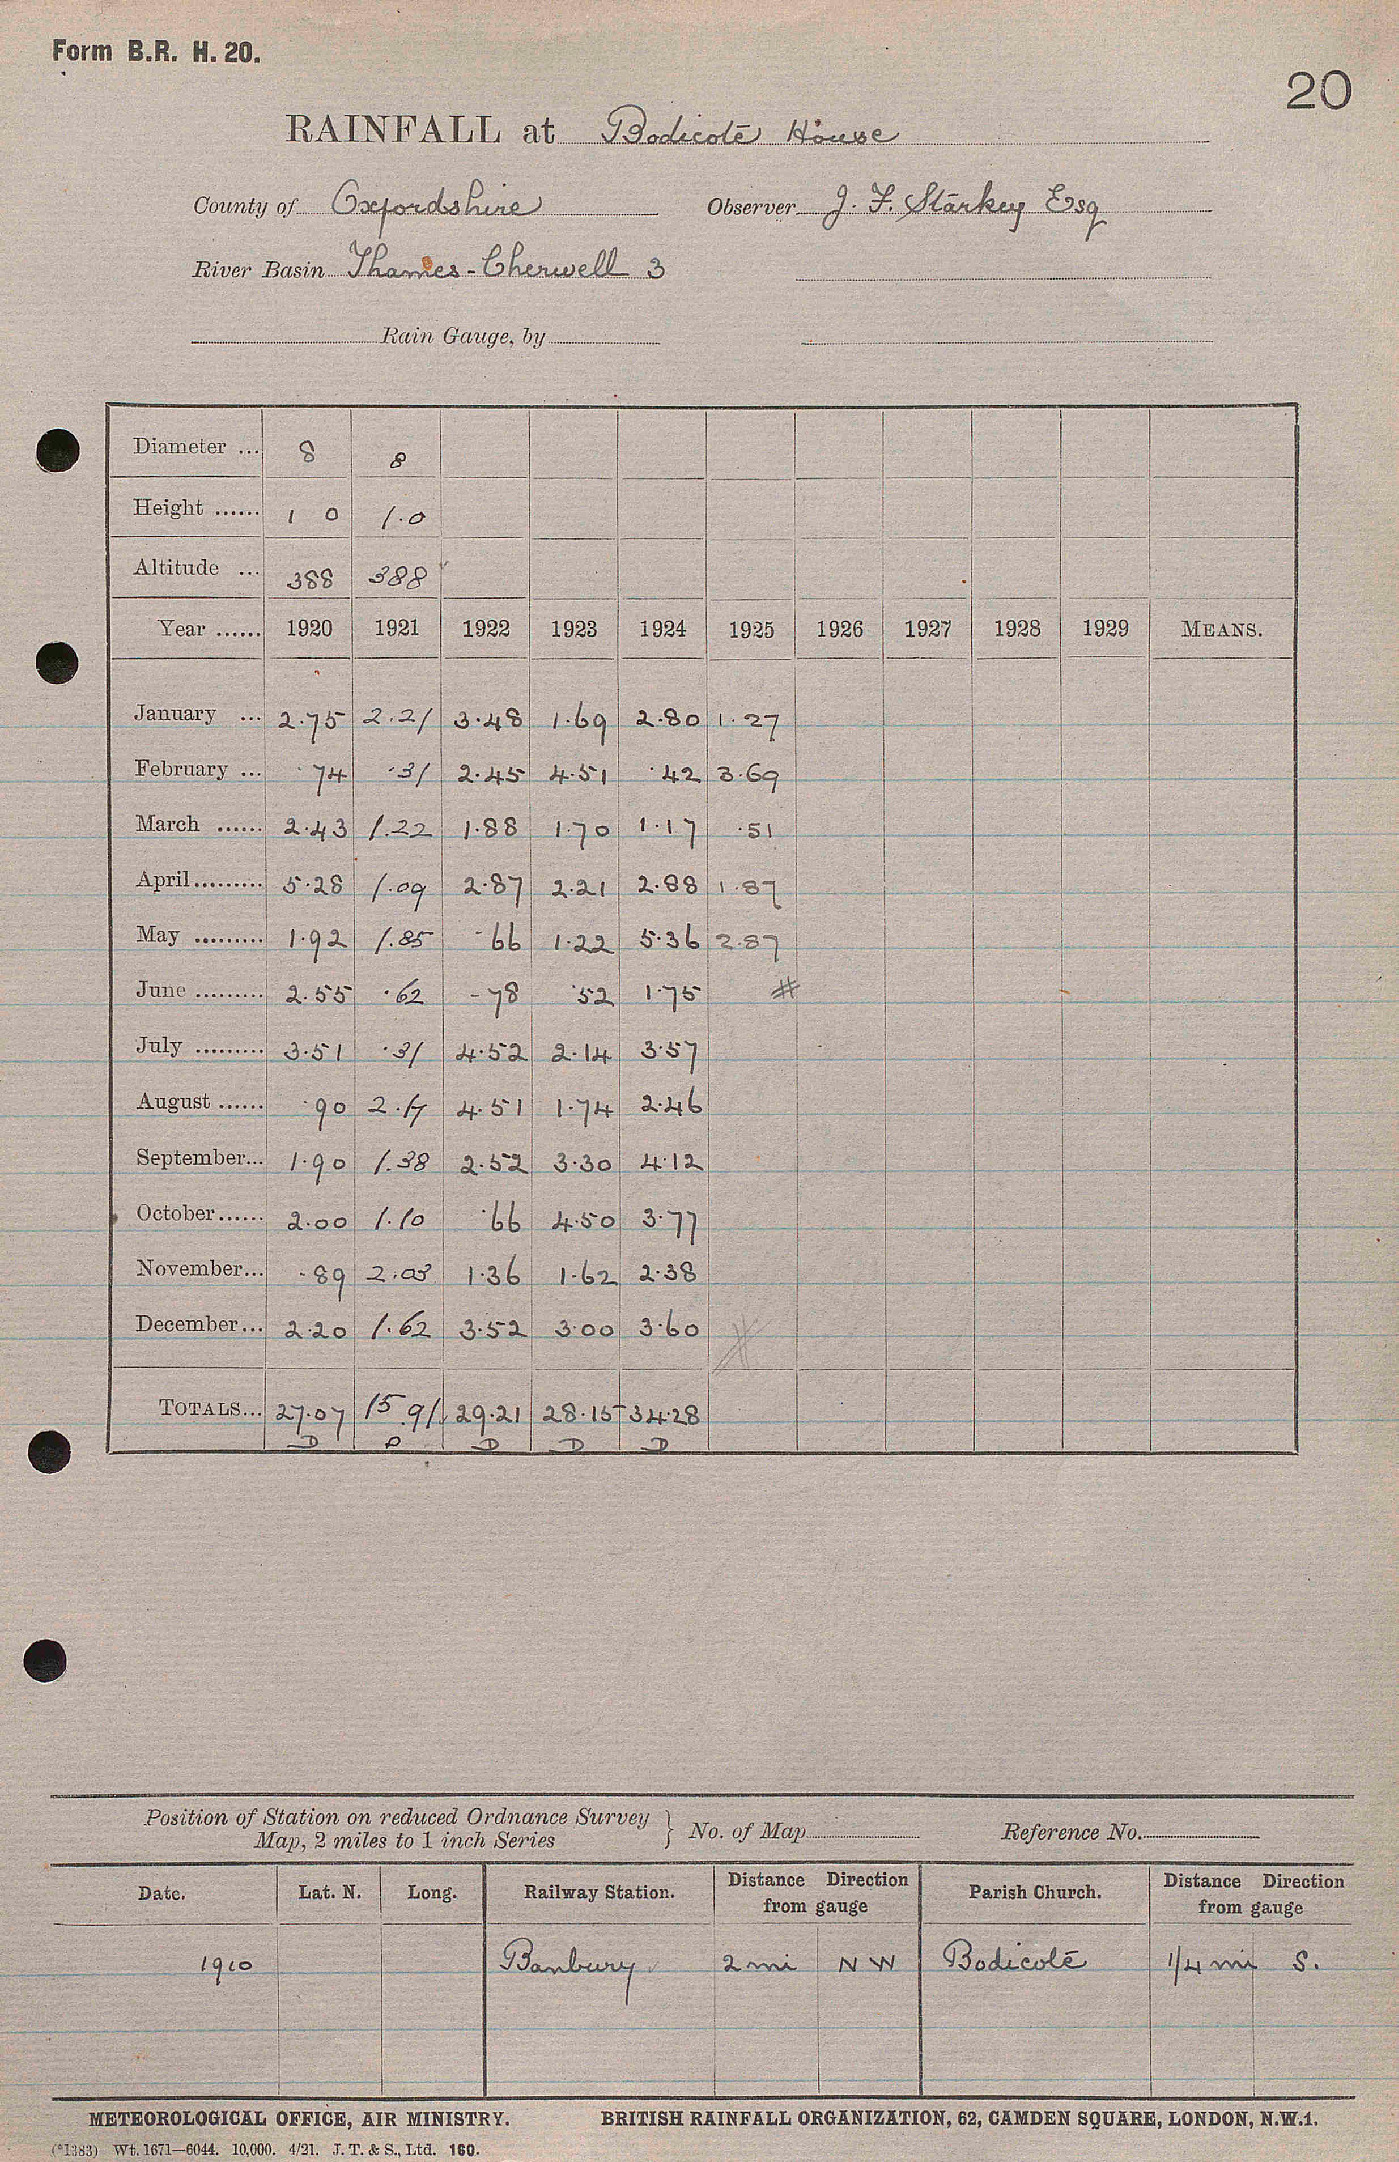 Form B.R. H. 20.
20
RAINFALL at Bodicote House
County of Oxfordshire Observer J. F. Starkey Esq
River Basin Thames-Cherwell 3
Rain Gauge, by
Diameter ... 8 8
Height ...... 1 0 1.0
Altitude ... 388 388
Year ...... 1920 1921 1922 1923 1924 1925 1926 1927 1928 1929 MEANS.
January ... 2.75 2.21 3.48 1.69 2.80 1.27
February ... .74 .31 2.45 4.51 .42 3.69
March ...... 2.43 1.22 1.88 1.70 1.17 .51
April......... 5.28 1.09 2.87 2.21 2.88 1.87
May ......... 1.92 1.85 .66 1.22 5.36 2.87
June ......... 2.55 .62 .78 .52 1.75 #
July ......... 3.51 .31 4.52 2.14 3.57
August ...... .90 2.17 4.51 1.74 2.46
September... 1.90 1.38 2.52 3.30 4.12
October...... 2.00 1.10 .66 4.50 3.77
November... .89 2.03 1.36 1.62 2.38
December... 2.20 1.62 3.52 3.00 3.60 #
TOTALS... 27.07 15.91 29.21 28.15 34.28
D D D D D
Position of Station on reduced Ordnance Survey
Map, 2 miles to 1 inch Series } No. of Map Reference No.
Date. Lat. N. Long. Railway Station. Distance Direction from gauge Parish Church. Distance Direction from gauge
1910 Banbury 2 mi NW Bodicote 1/4 mi S.
METEOROLOGICAL OFFICE, AIR MINISTRY. BRITISH RAINFALL ORGANIZATION, 62, CAMDEN SQUARE, LONDON, N.W.1.
(*1383) Wt. 1671—6044. 10,000. 4/21. J. T. & S., Ltd. 160.